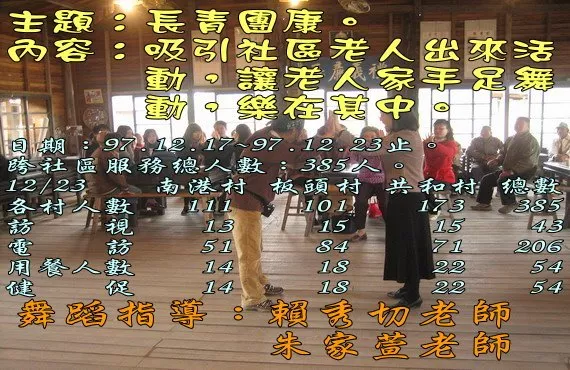 主題：長青團康。
內容：吸引社區老人出來活
動，讓老人家手足舞
動，樂在其中。
日期：97.12.17~97.12.23止。
跨社區服務總人數：385人。
12/23 南港村 板頭村 共和村 總數
各村人數 111 101 173 385
訪視 13 15 15 43
電訪 51 84 71 206
用餐人數 14 18 22 54
健促 14 18 22 54
舞蹈指導：賴秀切老師
朱家萱老師